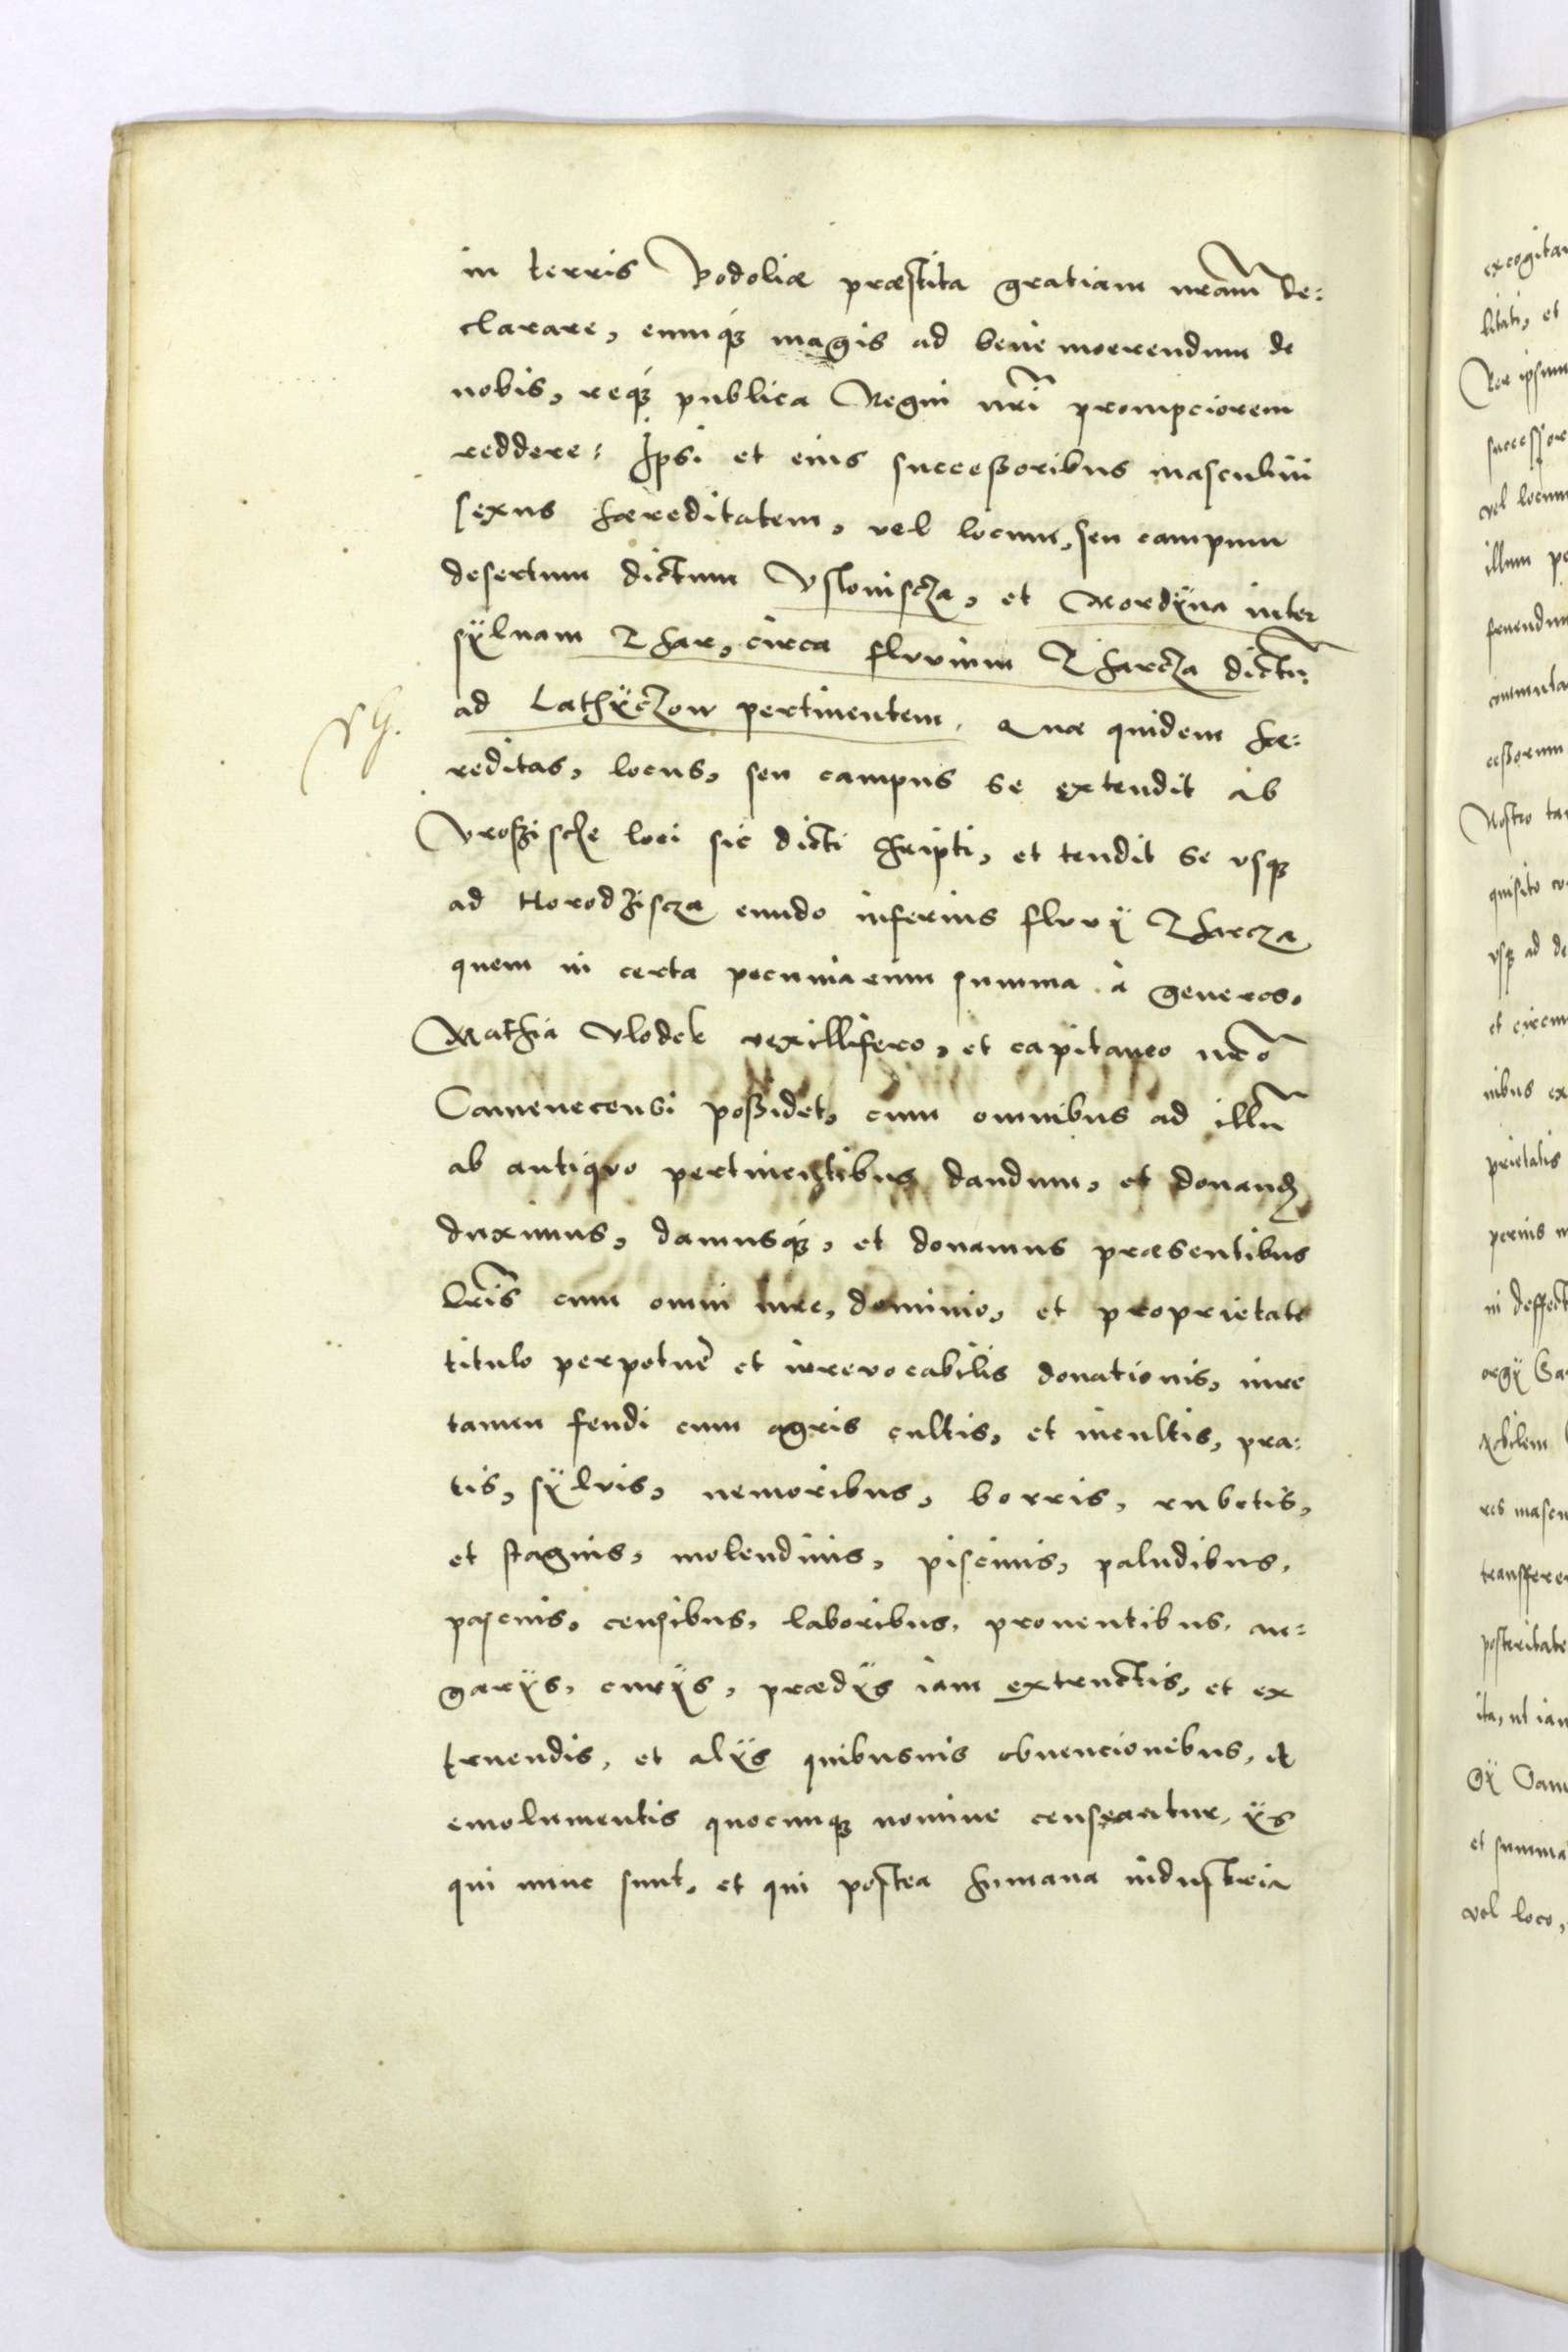 in terris Podoliæ præstita gratiam nram de:
clarare, eumq́ꝫ magis ad bene moerendum de
nobis, reqꝫ publica Regni nri prompciorem
reddere: Ipsi et eius succeßoribus masculini
sexus hæreditatem, vel locum, seu campum
desertum dictum Vstoniscza, et Mordÿna inter
sÿluam Thar, circa fluuium Tharcza dictũ
ad Lathÿczow pertinentem. Quæ quidem hæ:
reditas, locus, seu campus se extendit ab
Vroßische loci sic dicti, et tendit se vsqꝫ
ad Horodziscza eundo inferius fluuÿ Tharcza
quem in certa pecuniarum summa à generos.
Mathia Vlodek vexillifero, et capitaneo nro
Camenecensi poßidet, cum omnibus ad illũ
ab antiquo pertinentibus dandum, et donand
duximus, damusq́ꝫ, et donamus præsentibus
lris cum omni iure, dominio, et proprietate
titulo perpetuæ et irreuocabilis donationis, iure
tamen feudi cum agris cultis, et incultis, pra:
tis, sÿluis, nemoribus, borris, rubetis,
et stagnis, molendinis, piscinis, paludibus,
pascuis, censibus, laboribus, prouentibus, an:
garÿs, curÿs, prædÿs iam extructis, et ex
truendis, et alÿs quibusuis obuencionibus, et
emolumentis quocunqꝫ nomine censeantur, ÿs
qui nunc sunt, et qui postea humana industria
excogitar
litati, et
ipsum
successor
vel locum
illum po
commuta
ceßorum
Nostro ta
quisito
vsqꝫ ad de
et circum
nibus ex
prietatis
perius
in deffect
orgÿ
res mascu
transfferre
posteritate
ita, ut iam
et summa
vel loco,